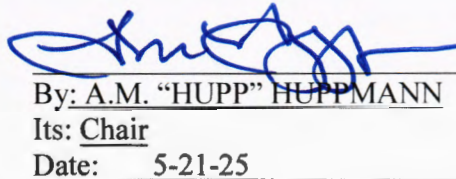 By: A.M. “HUPP” HUPPMANN
Its: Chair
Date: 5-21-25